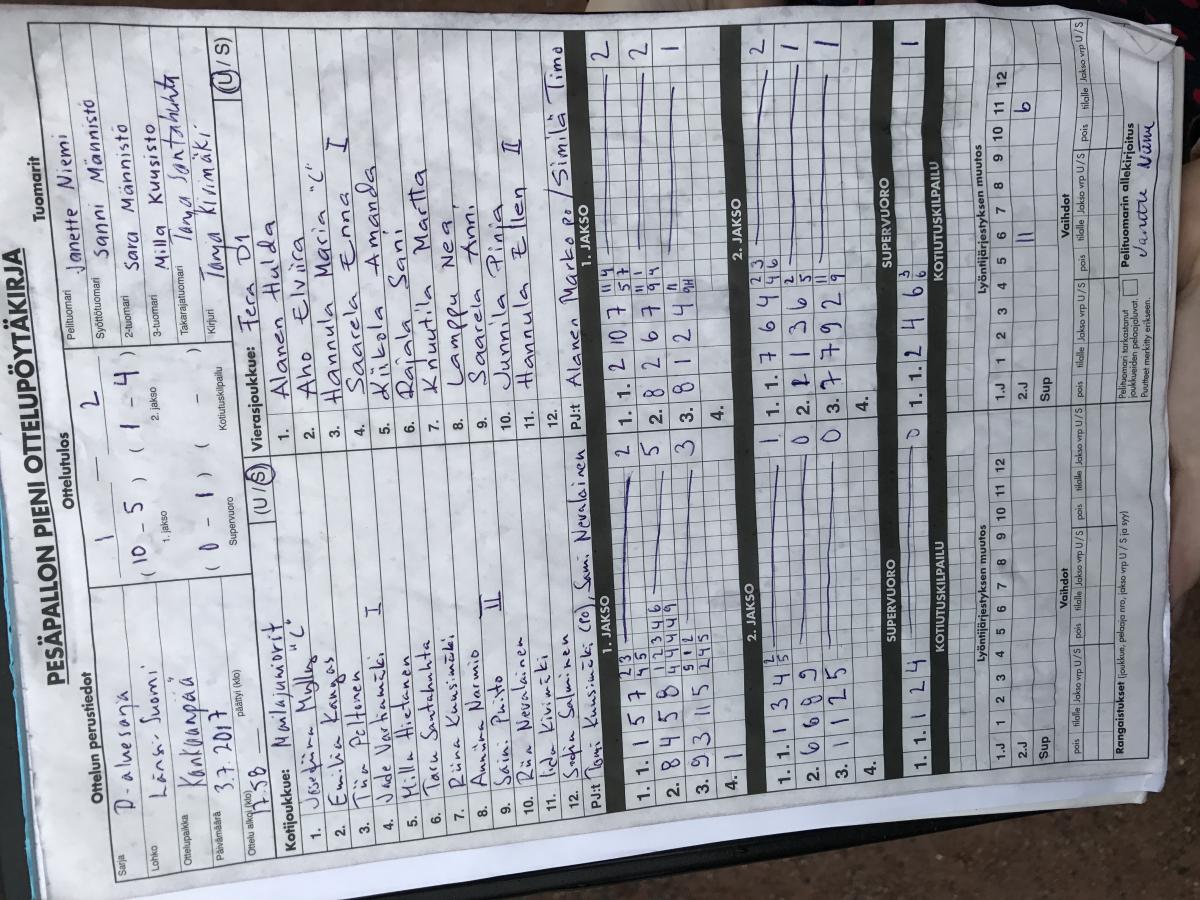 PESÄPALLON PIENI OTTELUPÖYTÄKIRJA
Ottelun perustiedot
Sarja D-aluesarja
Lohko Länsi-Suomi
Ottelupaikka Kankaanpää
Päivämäärä 3.7.2017
Ottelu alkoi (klo) 17.58 päättyi (klo)
Ottelutulos
1 — 2
(10 - 5) (1 - 4)
1. jakso 2. jakso
(0 - 1) ( - )
Supervuoro Kotiutuskilpailu
Tuomarit
Pelituomari Janette Niemi
Syöttötuomari Sanni Männistö
2-tuomari Sara Männistö
3-tuomari Milla Kuusisto
Takarajatuomari Tanja Santahuhta
Kirjuri Tanja Kivimäki
Kotijoukkue: Nallajuniorit (U/S)
1. Josefiina Mylly "C"
2. Emilia Kangas
3. Tiia Peltonen
4. Jade Vartiamäki I
5. Milla Hietanen
6. Taru Santahuhta
7. Riina Kuusimäki
8. Anniina Narmio
9. Saini Paito II
10. Riia Nevalainen
11. Iida Kivimäki
12. Sofia Salminen
PJ:t Tomi Kuusimäki (PO), Sami Nevalainen
Vierasjoukkue: Fera D1 (U/S)
1. Alanen Hulda
2. Aho Elviira
3. Hannula Maria "C"
4. Saarela Enna I
5. Kiikola Amanda
6. Rajala Sani
7. Knuutila Martta
8. Lamppu Nea
9. Saarela Anni
10. Junnila Pinja
11. Hannula Ellen II
12.
PJ:t Alanen Marko PO / Similä Timo
1. JAKSO
1. 1. 1 5 7 2 3 4 5 2
2. 8 4 5 8 1 2 3 4 6 4 4 4 4 9 5
3. 9 3 11 5 5 12 2 4 5 3
4. 1
1. JAKSO
1. 1. 2 10 7 11 4 5 7 2
2. 8 2 6 7 11 1 9 4 2
3. 8 12 4 11 1
4.
2. JAKSO
1. 1. 1 3 4 2 5 1
2. 6 6 8 9 0
3. 1 1 2 5 0
4.
2. JAKSO
1. 1. 7 6 4 2 3 4 6 2
2. 2 1 3 6 2 5 1
3. 7 7 9 2 11 9 1
4.
SUPERVUORO
1. 1. 1 2 4 0
SUPERVUORO
1. 1. 2 4 6 3 6 1
KOTIUTUSKILPAILU
KOTIUTUSKILPAILU
Lyöntijärjestyksen muutos
1.J 1 2 3 4 5 6 7 8 9 10 11 12
2.J
Sup
Lyöntijärjestyksen muutos
1.J 1 2 3 4 5 6 7 8 9 10 11 12
2.J 11 6
Sup
Vaihdot
pois tilalle Jakso vrp U/S pois tilalle Jakso vrp U/S pois tilalle Jakso vrp U/S
Vaihdot
pois tilalle Jakso vrp U/S pois tilalle Jakso vrp U/S pois tilalle Jakso vrp U/S
Rangaistukset (joukkue, pelaaja nro, jakso vrp U / S ja syy)
Pelituomari tarkastanut
joukkueiden pelaajaluvat.
Puutteet merkitty erikseen.
Pelituomarin allekirjoitus
Janette Niemi